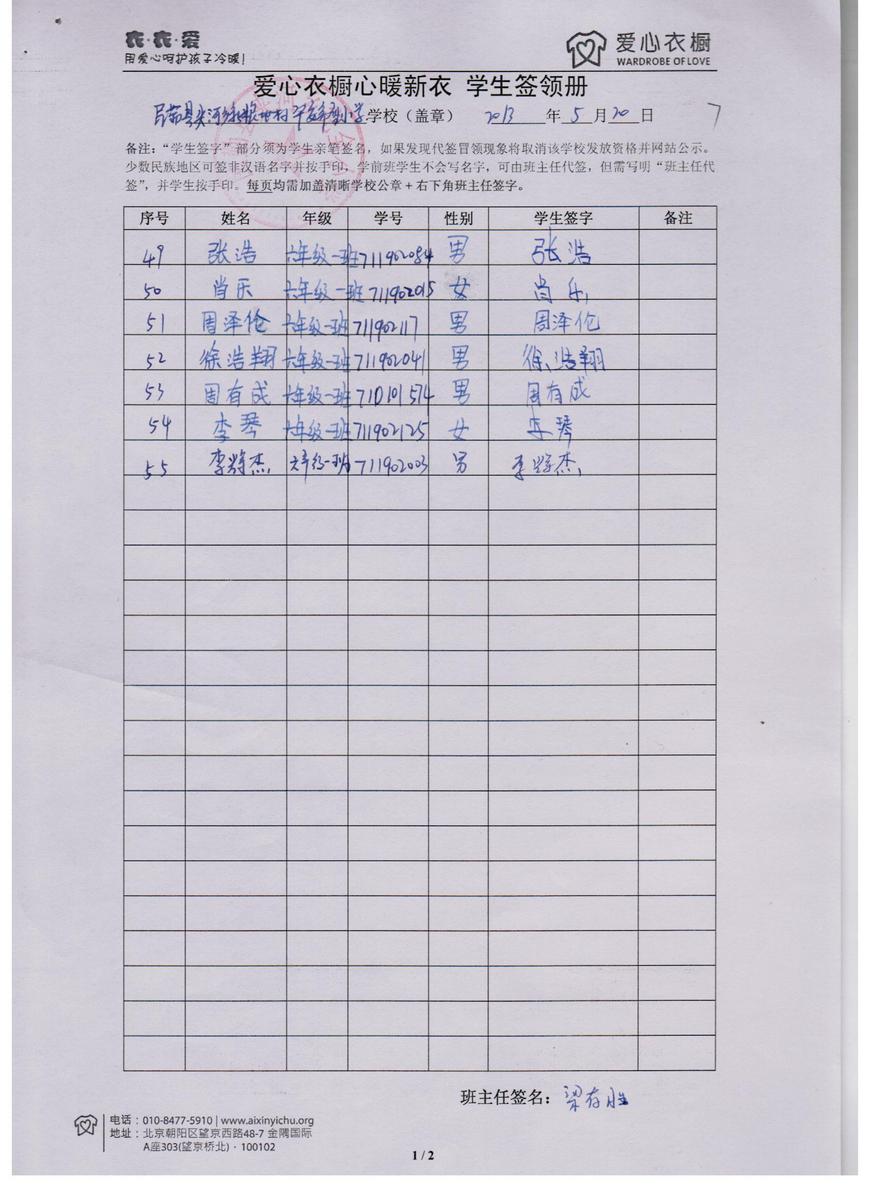 衣·衣·爱
用爱心呵护孩子冷暖!
爱心衣橱
WARDROBE OF LOVE
爱心衣橱心暖新衣 学生签领册
学校（盖章） 2013 年 5 月 20 日 7
备注：“学生签字”部分须为学生亲笔签名，如果发现代签冒领现象将取消该学校发放资格并网站公示。
少数民族地区可签非汉语名字并按手印，学前班学生不会写名字，可由班主任代签，但需写明“班主任代
签”，并学生按手印。每页均需加盖清晰学校公章+右下角班主任签字。
序号 姓名 年级 学号 性别 学生签字 备注
49 张浩 六年级一班 711902084 男 张浩
50 肖乐 六年级一班 711902015 女 肖乐
51 周泽伦 六年级一班 711902117 男 周泽伦
52 徐浩翔 六年级一班 711902041 男 徐浩翔
53 周有成 六年级一班 71D101574 男 周有成
54 李琴 六年级一班 711902125 女 李琴
55 李 杰 六年级一班 711902003 男 李 杰
班主任签名：梁存胜
电话：010-8477-5910 | www.aixinyichu.org
地址：北京朝阳区望京西路48-7 金隅国际
A座303(望京桥北)·100102
1 / 2